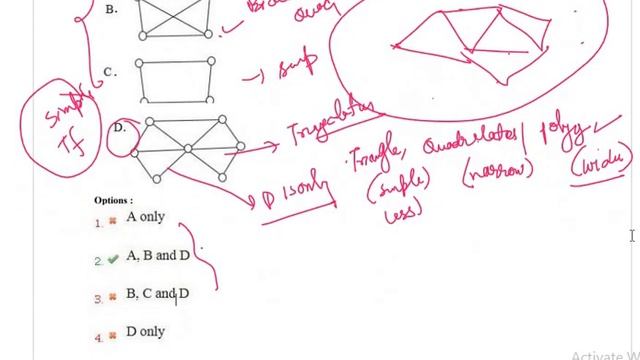 B.
C.
→ simp
Simple
Tf
D.
→ Triangulation
Triangle, Quadrilateral / polyg ✓
(simple) (narrow) (wide)
less)
D is only
Options :
1. ✖ A only
2. ✔ A, B and D
3. ✖ B, C and D
4. ✖ D only
Activate W